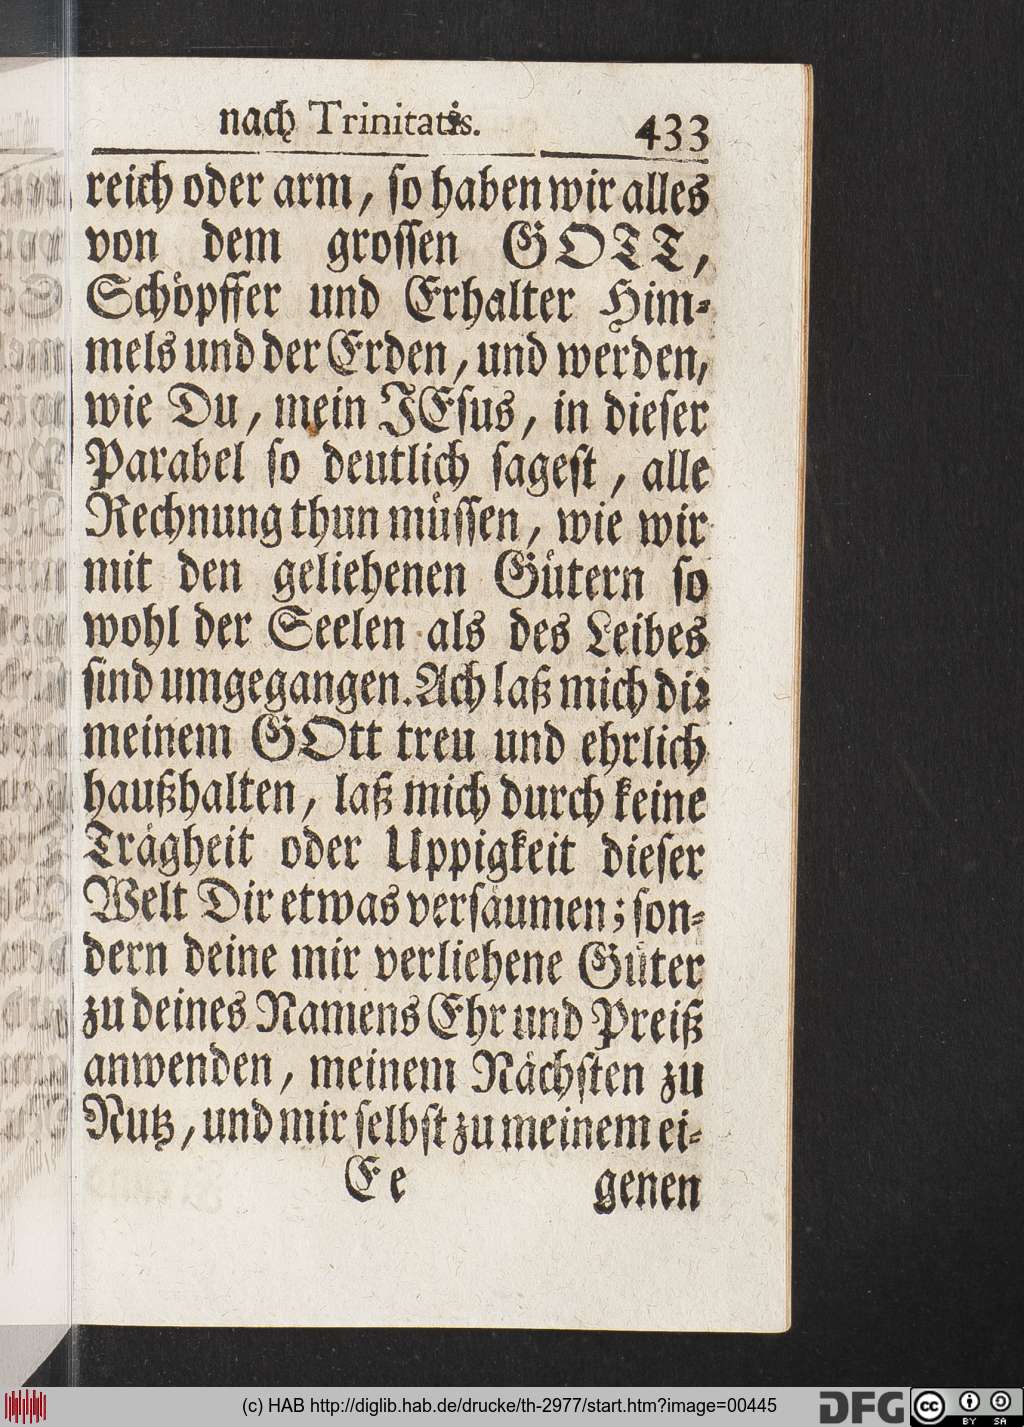 nach Trinitatis. 433
reich oder arm, so haben wir alles
von dem grossen GOTT,
Schöpffer und Erhalter Him-
mels und der Erden, und werden,
wie Du, mein JEsus, in dieser
Parabel so deutlich sagest, alle
Rechnung thun müssen, wie wir
mit den geliehenen Gütern so
wohl der Seelen als des Leibes
sind umgegangen. Ach laß mich dir
meinem GOtt treu und ehrlich
haußhalten, laß mich durch keine
Trägheit oder Uppigkeit dieser
Welt Dir etwas versäumen; son-
dern deine mir verliehene Güter
zu deines Namens Ehr und Preiß
anwenden, meinem Nächsten zu
Nutz, und mir selbst zu meinem ei-
Ee genen
(c) HAB http://diglib.hab.de/drucke/th-2977/start.htm?image=00445
DFG
cc BY SA